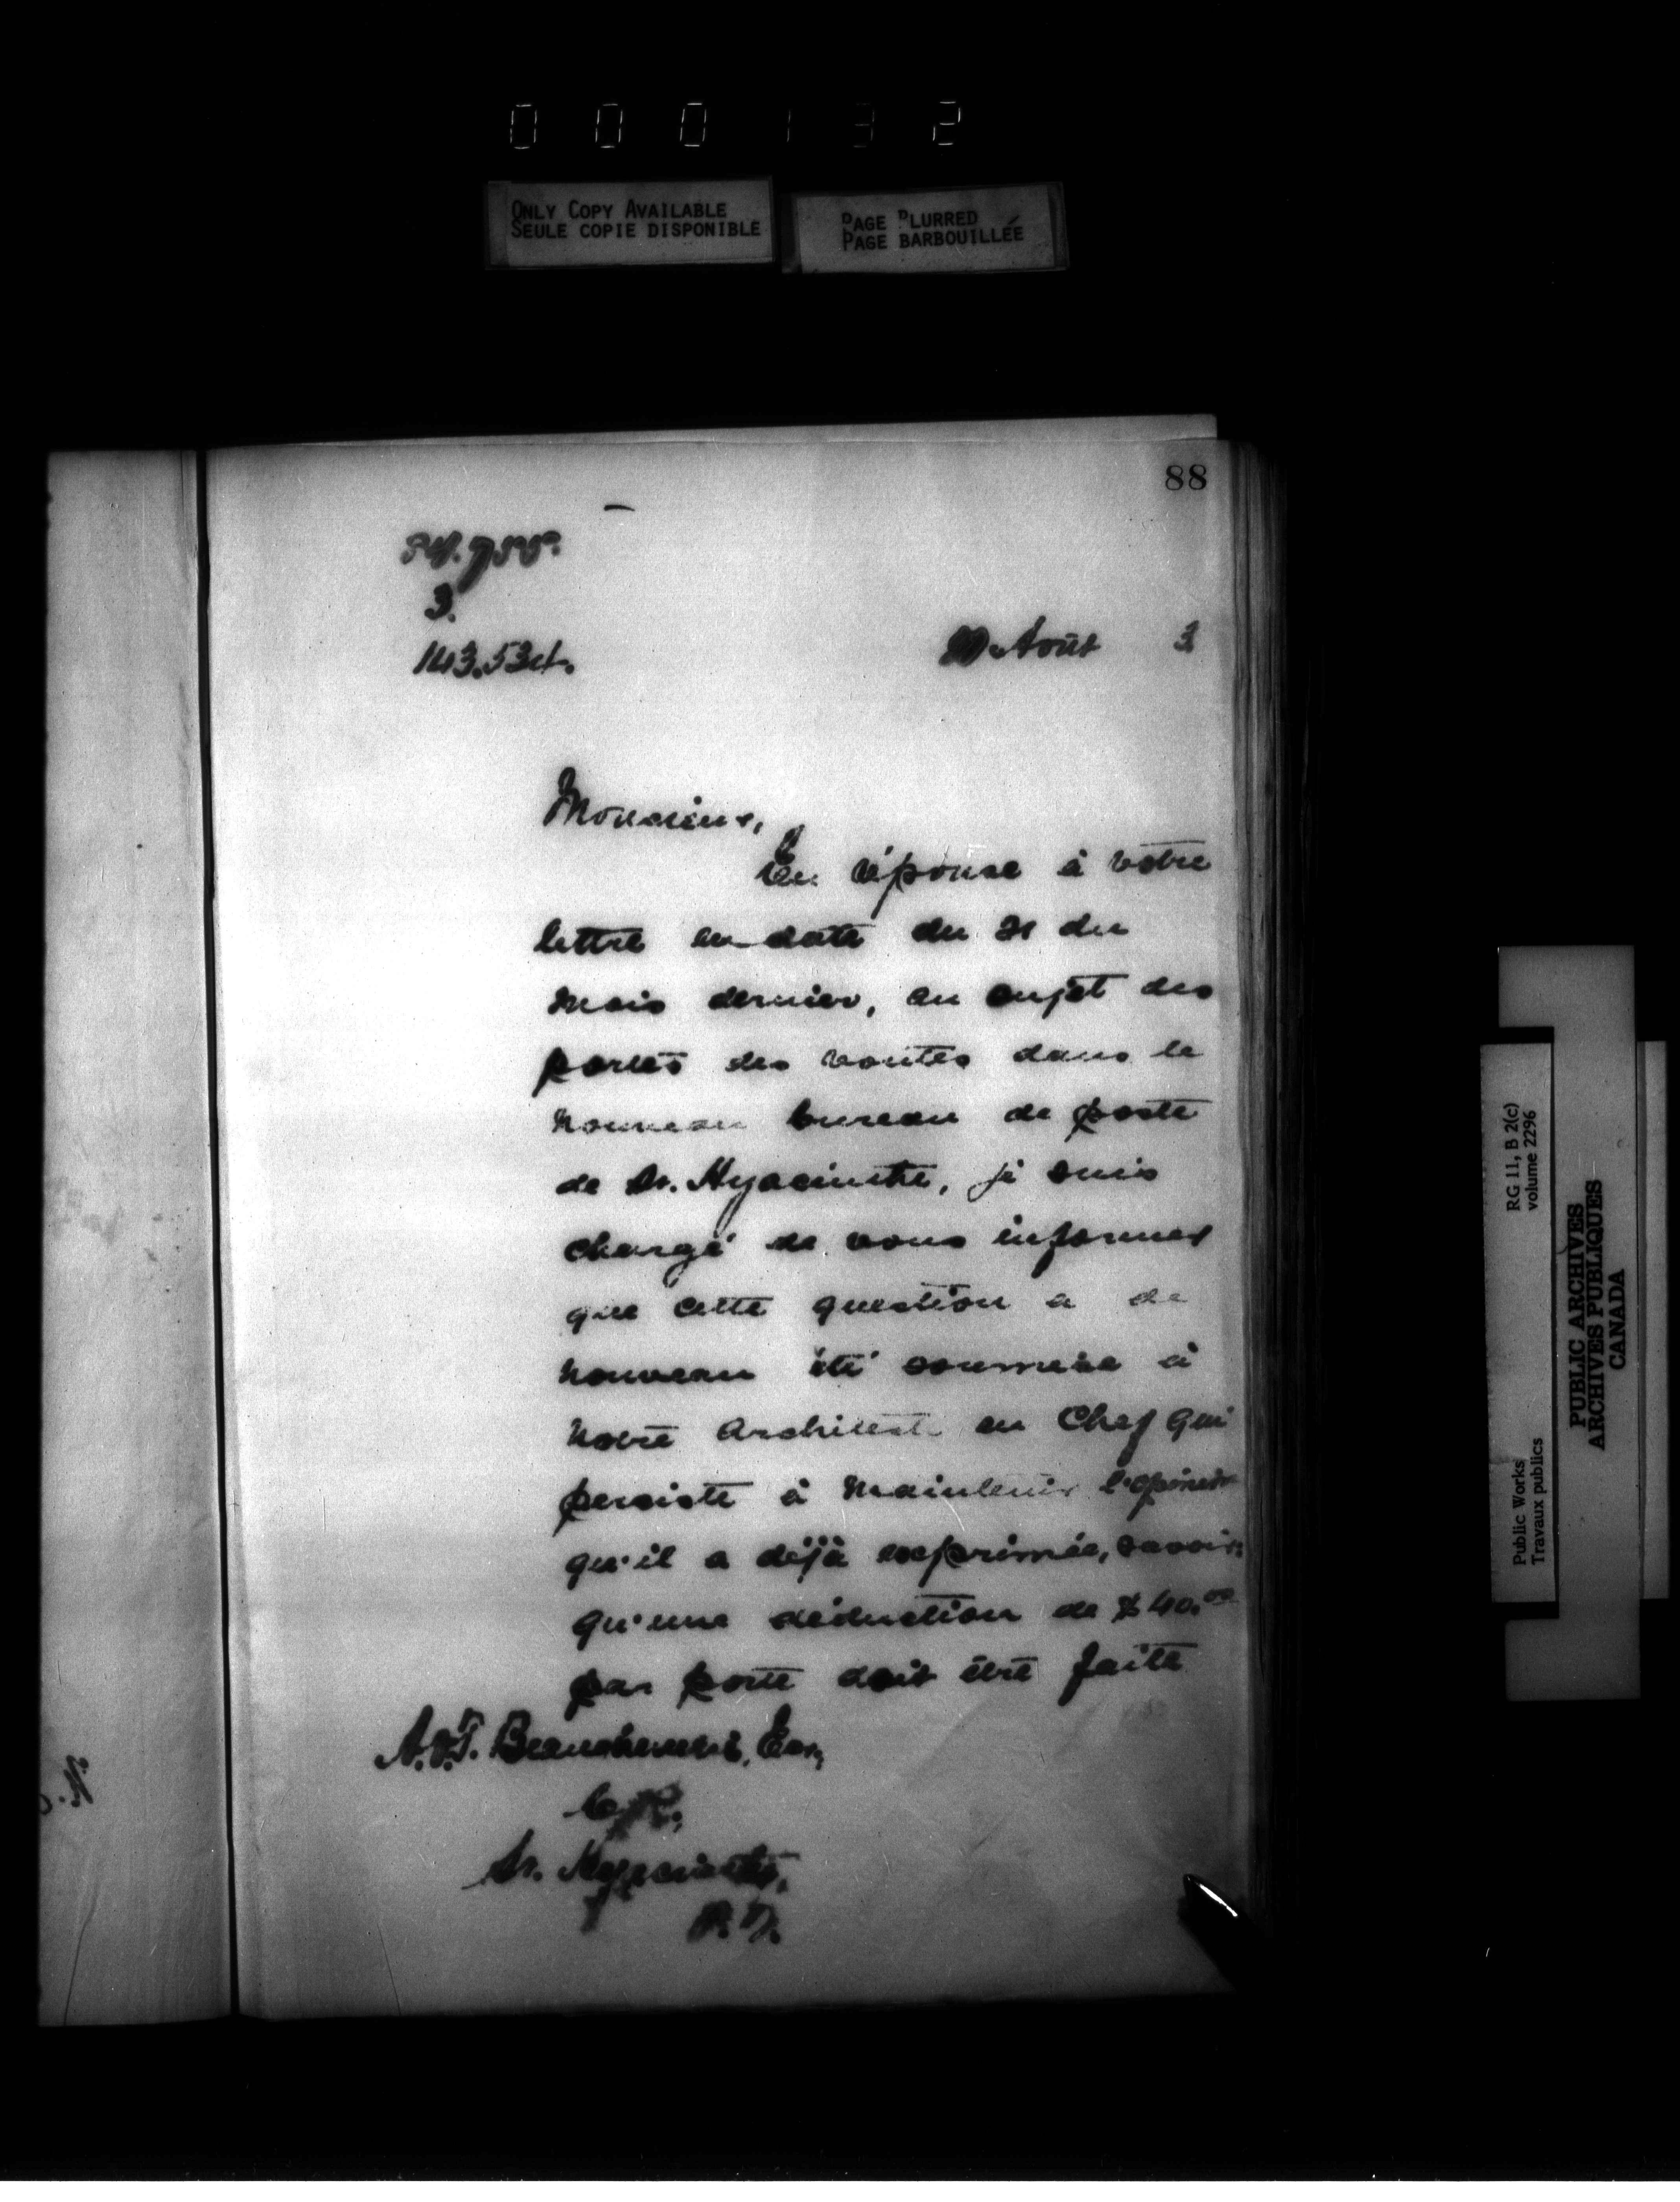 000132
ONLY COPY AVAILABLE
SEULE COPIE DISPONIBLE
PAGE BLURRED
PAGE BARBOUILLÉE
88
3.
143.534.
Août 3
Monsieur,
En réponse à votre
lettre en date du 31 du
mois dernier, au sujet des
portes des voutes dans le
nouveau bureau de poste
de St. Hyacinthe, je suis
chargé de vous informer
que cette question a de
nouveau été soumise à
notre Architecte en Chef qui
persiste à maintenir l'opinion
qu'il a déjà exprimée, savoir:
qu'une déduction de $40.00
par porte doit être faite
A.O.T. Beauchemin, Esq,
St. Hyacinthe,
P.Q.
RG 11, B 2(c)
volume 2296
Public Works
Travaux publics
PUBLIC ARCHIVES
ARCHIVES PUBLIQUES
CANADA